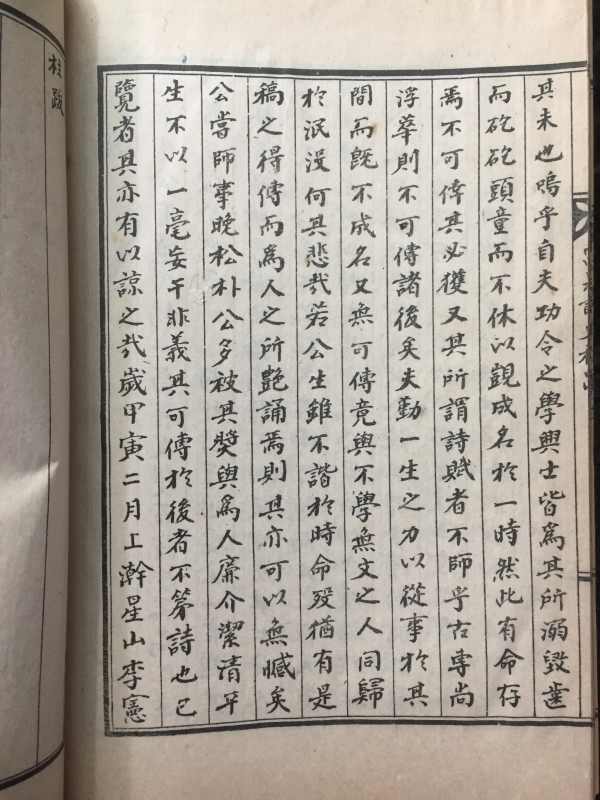 其未也嗚乎自夫功令之學興士皆爲其所溺毀齒
而矻矻頭童而不休以覬成名於一時然此有命存
焉不可倖其必獲又其所謂詩賦者不師乎古專尚
浮華則不可傳諸後矣夫勤一生之力以從事於其
間而旣不成名又無可傳竟與不學無文之人同歸
於泯沒何其悲哉若公生雖不諧於時命歿猶有是
稿之得傳而爲人之所艶誦焉則其亦可以無憾矣
公嘗師事晩松朴公多被其奬與爲人廉介潔淸平
生不以一毫妄干非義其可傳於後者不第詩也已
覽者其亦有以諒之哉歲甲寅二月上澣星山李憲
跋